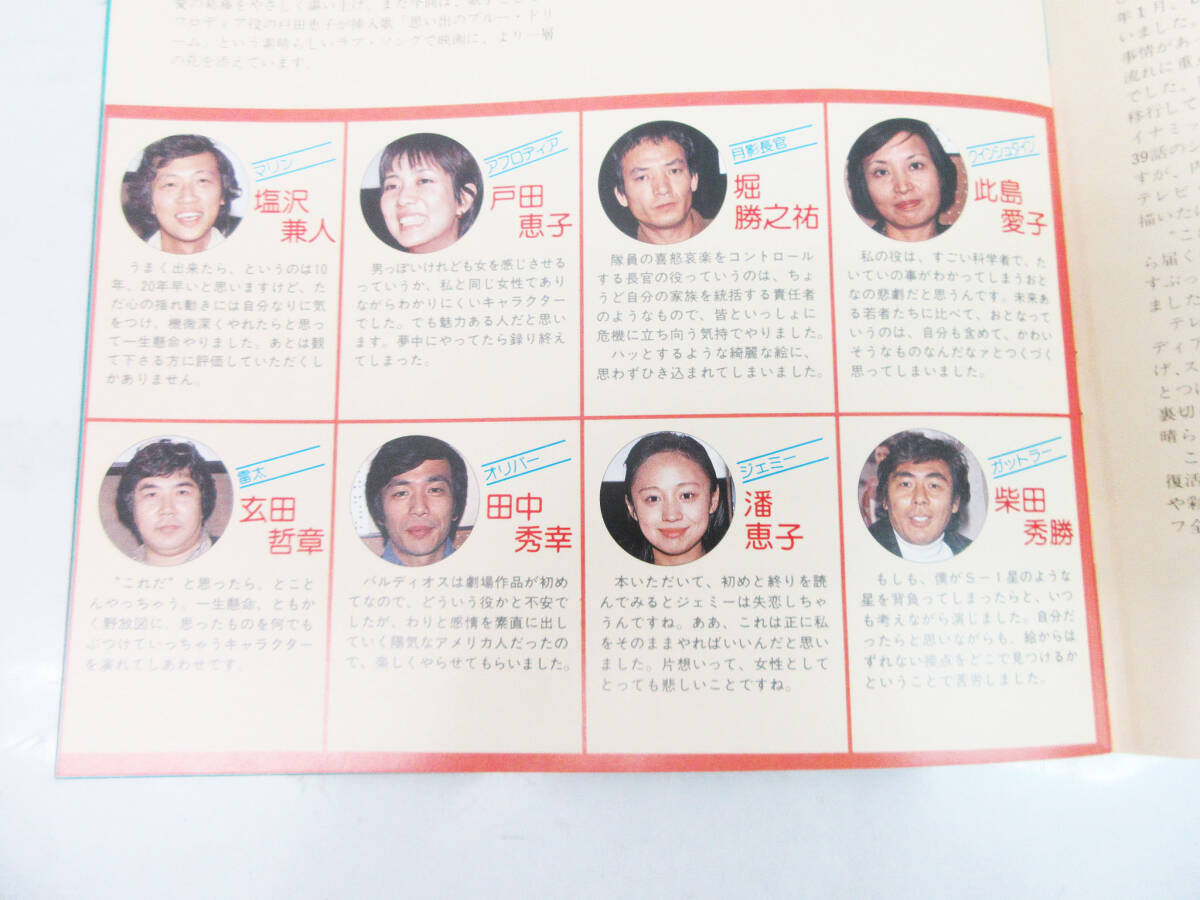 愛の葛藤をやさしく謳い上げ、また今回は、歌手としても
フロディア役の戸田恵子が挿入歌「思い出のブルー・ドリ
ーム」という素晴らしいラブ・ソングで映画に、より一層
の花を添えています。
マリン
塩沢
兼人
うまく出来たら、というのは10
年、20年早いと思いますけど、た
だ心の揺れ動きには自分なりに気
をつけ、機微深くやれたらと思っ
て一生懸命やりました。あとは観
て下さる方に評価していただくし
かありません。
アフロディア
戸田
恵子
男っぽいけれども女を感じさせる
っていうか、私と同じ女性であり
ながらわかりにくいキャラクター
でした。でも魅力ある人だと思い
ます。夢中にやってたら録り終え
てしまった。
月影長官
堀
勝之祐
隊員の喜怒哀楽をコントロール
する長官の役っていうのは、ちょ
うど自分の家族を統括する責任者
のようなもので、皆といっしょに
危機に立ち向う気持でやりました。
ハッとするような綺麗な絵に、
思わずひき込まれてしまいました。
クインシュタイン
此島
愛子
私の役は、すごい科学者で、た
いていの事がわかってしまうおと
なの悲劇だと思うんです。未来あ
る若者たちに比べて、おとなって
いうのは、自分も含めて、かわい
そうなものなんだなァとつくづく
思ってしまいました。
雷太
玄田
哲章
“これだ”と思ったら、とこと
んやっちゃう。一生懸命、ともか
く野放図に、思ったものを何でも
ぶつけていっちゃうキャラクター
を演れてしあわせです。
オリバー
田中
秀幸
バルディオスは劇場作品が初め
てなので、どういう役かと不安で
したが、わりと感情を素直に出し
ていく陽気なアメリカ人だったの
で、楽しくやらせてもらいました。
ジェミー
潘
恵子
本いただいて、初めと終りを読
んでみるとジェミーは失恋しちゃ
うんですね。ああ、これは正に私
をそのままやればいいんだと思い
ました。片想いって、女性として
とっても悲しいことですね。
ガットラー
柴田
秀勝
もしも、僕がS−1星のような
星を背負ってしまったらと、いつ
も考えながら演じました。自分だ
ったらと思いながらも、絵からは
ずれない接点をどこで見つけるか
ということで苦労しました。
年1月、
いました。
事情があっ
流れに重点
でした。
移行して
イナミッ
39話のシ
すが、内
テレビ
描いた
“こ
ら届く
すぶっ
ました
テレ
ディア
げ、ス
とつけ
裏切
晴ら
こ
復活
や彩
フ全